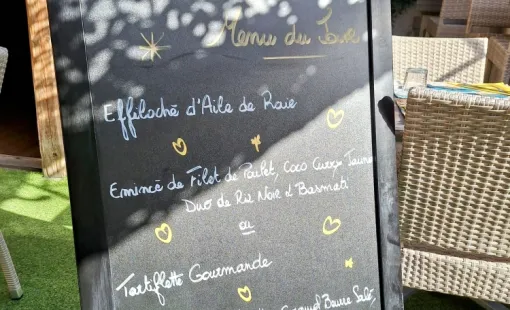 Menu du Jour
Effiloché d'Aile de Raie
Emincé de Filet de Poulet, Coco Curry Jaune
Duo de Riz Noir & Basmati
ou
Tartiflette Gourmande
Caramel Beurre Salé,